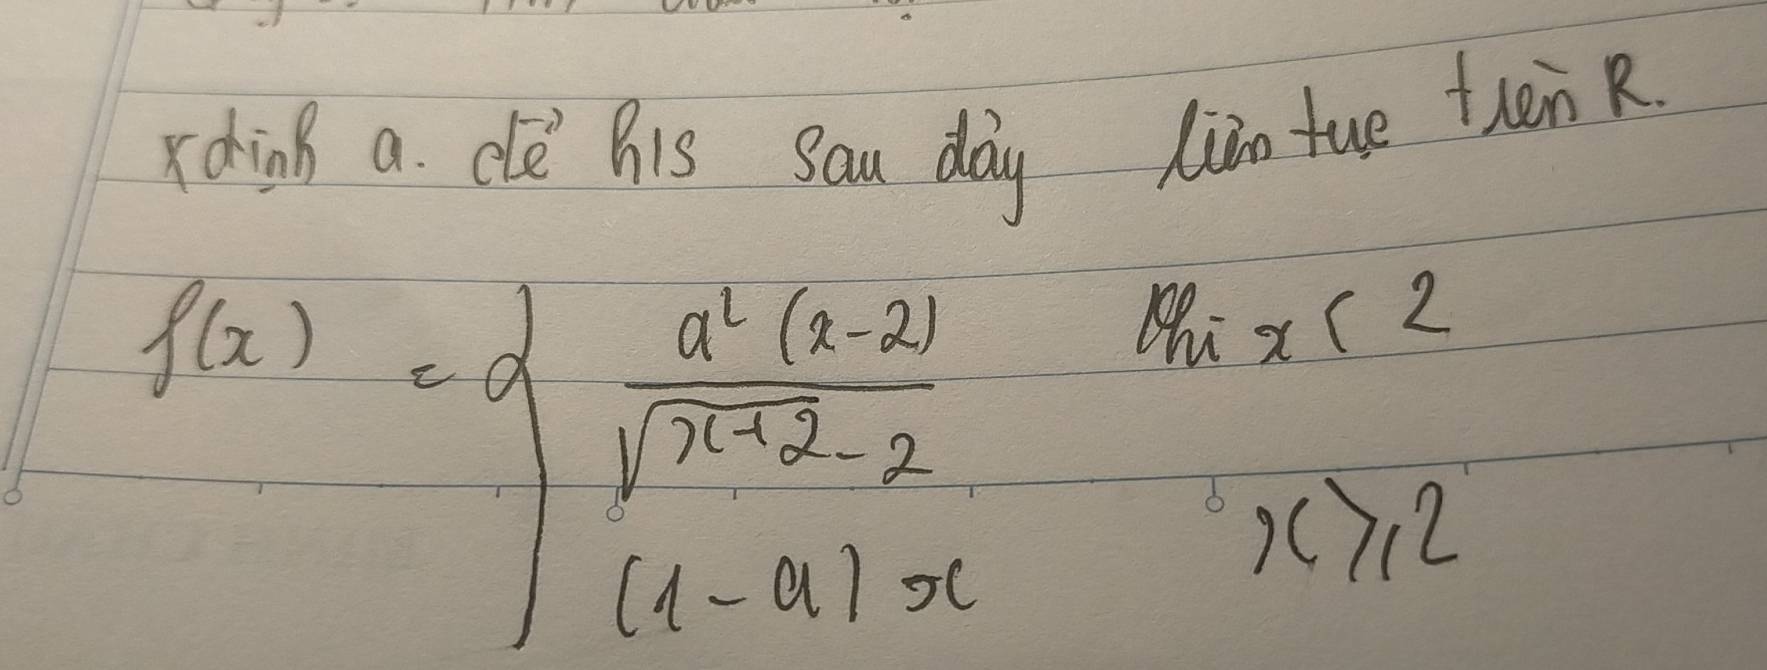 xđịnh a. để h/s sau đây liên tục trên R.
f(x) = { a² (x-2) / √x+2 - 2 khi x < 2
(1-a) x x ≥ 2